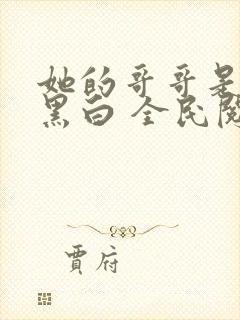 她的哥哥是
黑白 全民阅
贾府